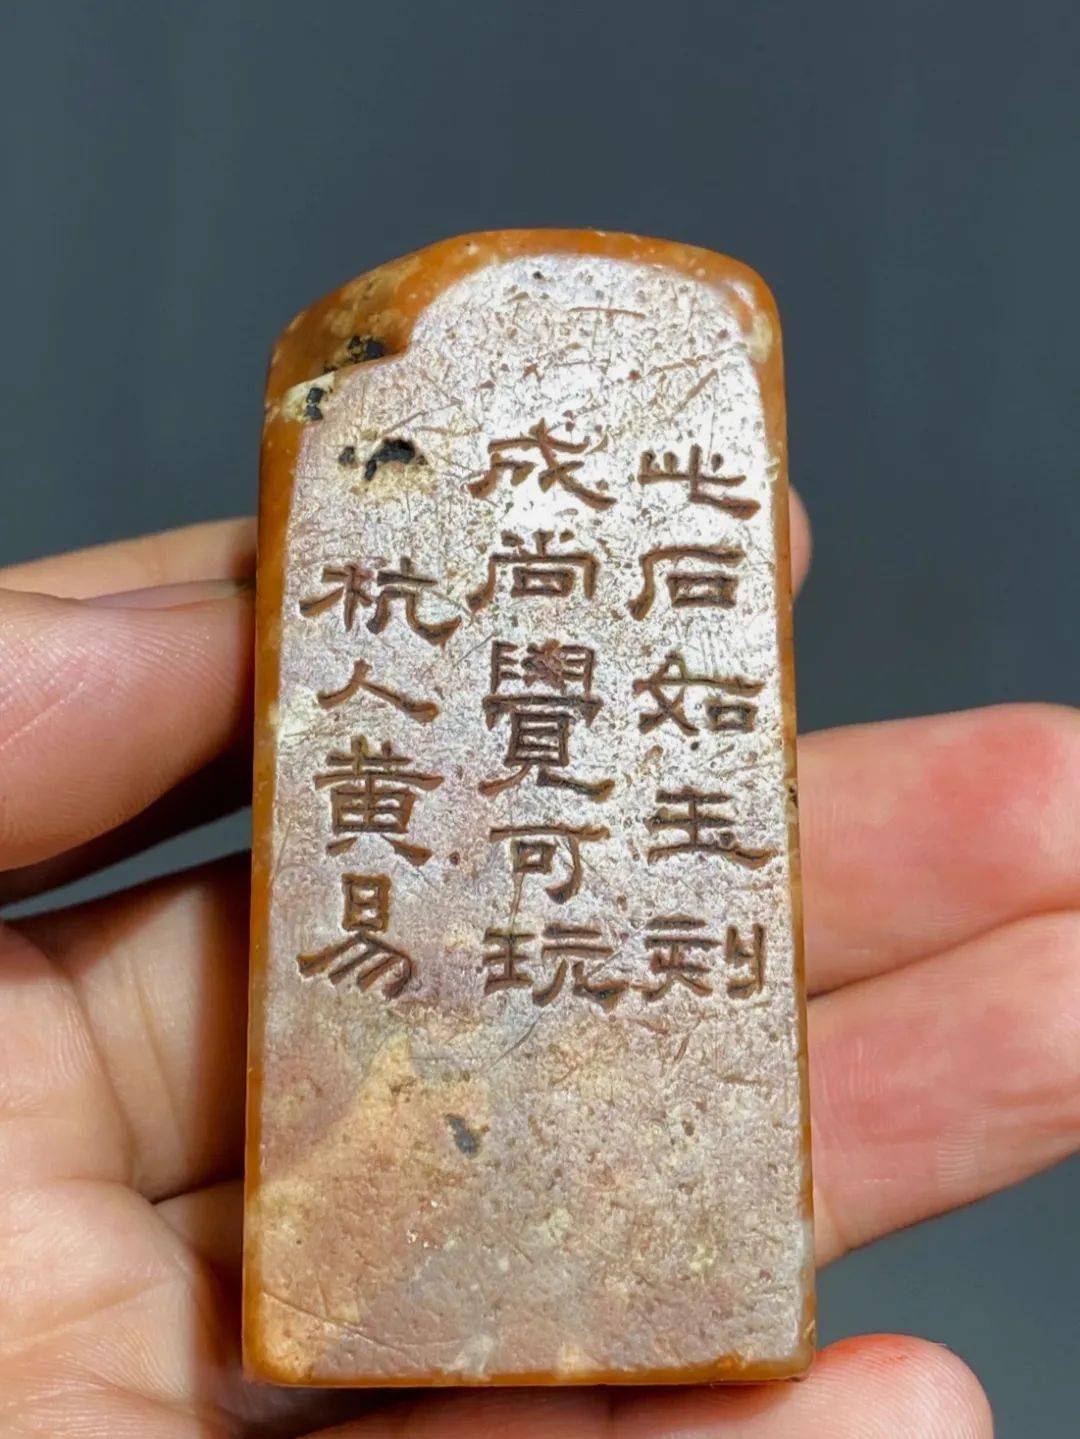 此石如玉刻
成尚覺可玩
杭人黄易